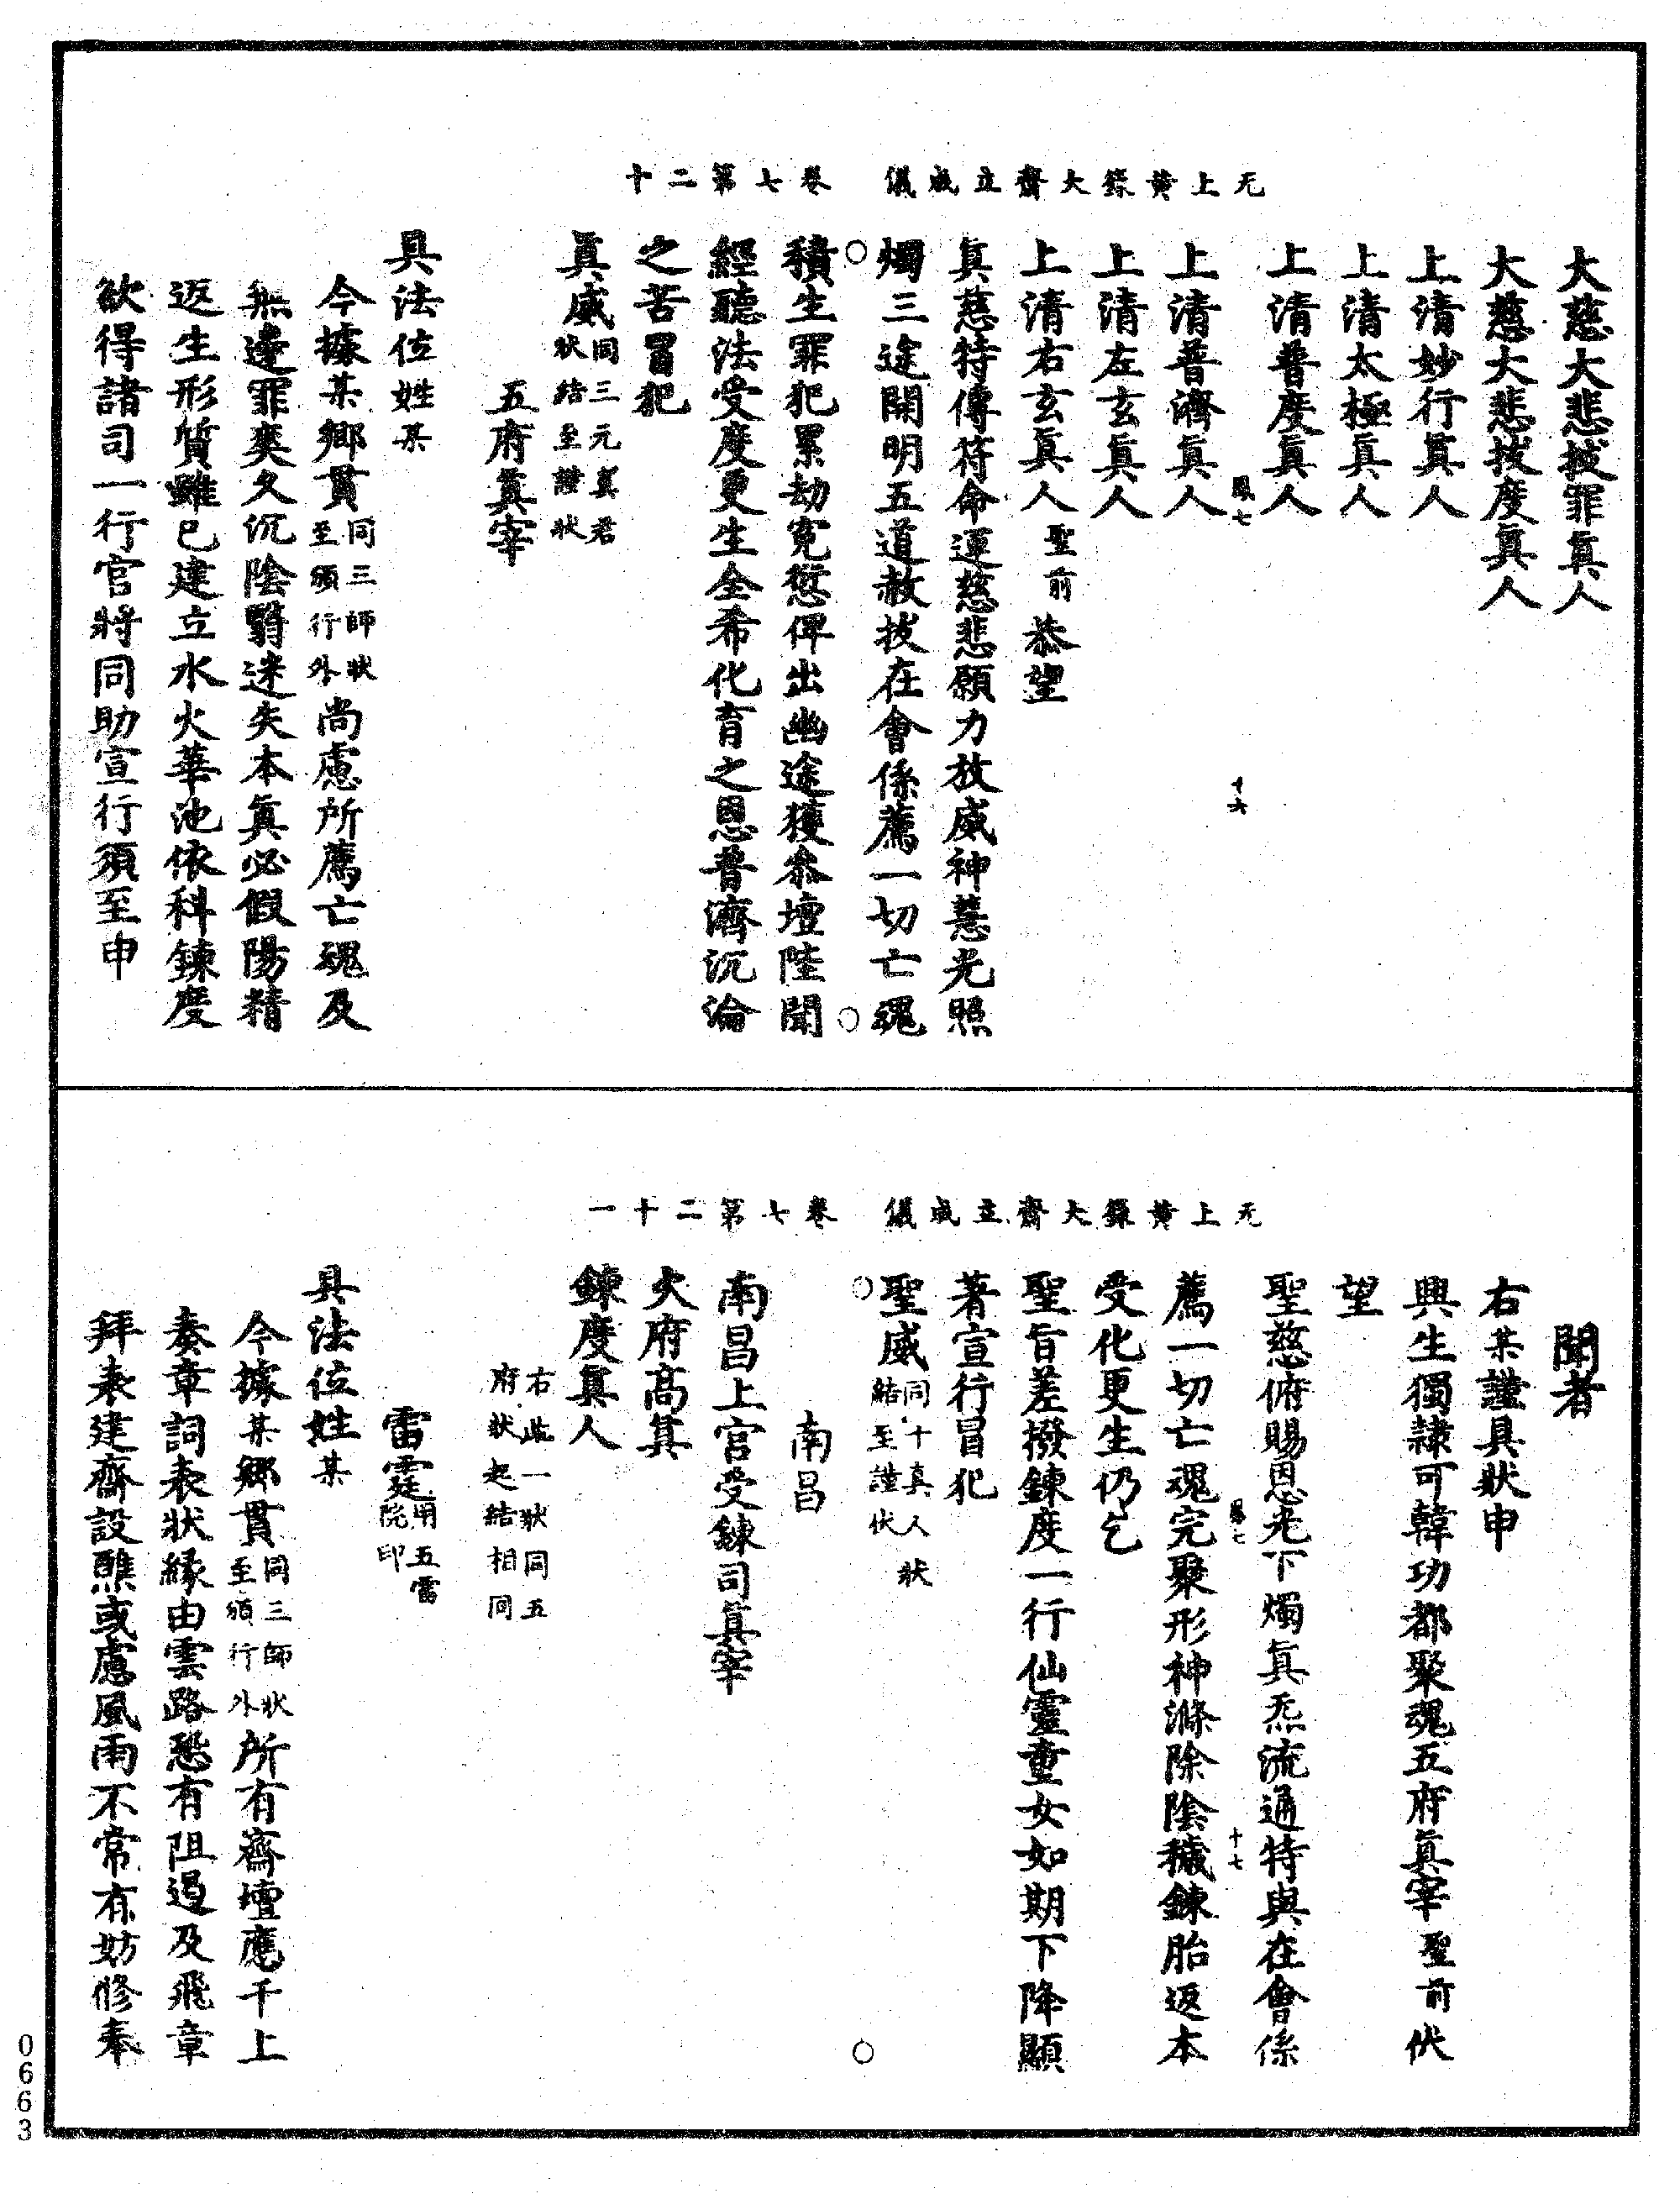 无上黃籙大齋立成儀　卷七第二十
大慈大悲拔罪真人
大慈大悲拔度真人
上清妙行真人
上清太極真人
上清普度真人
鳳七　十六
上清普濟真人
上清左玄真人
上清右玄真人聖前恭望
真慈特傳符命運慈悲願力放威神慧光照
燭三途開明五道赦拔在會係薦一切亡魂
積生罪犯累劫冤愆俾出幽途獲叅壇陛聞
經聽法受度更生全希化育之恩普濟沉淪
之苦冒犯
真威同三元真君狀結至謹狀
五府真宰
具法位姓某
今據某鄉貫同三師狀至頒行外尚慮所薦亡魂及
無邊罪爽久沉陰翳迷失本真必假陽精
返生形質雖已建立水火華池依科鍊度
欲得諸司一行官將同助宣行須至申
无上黃籙大齋立成儀　卷七第二十一
聞者
右某謹具狀申
興生獨隷可韓功都聚魂五府真宰聖前伏
望
聖慈俯賜恩光下燭真炁流通特與在會係
鳳七　十七
薦一切亡魂完聚形神滌除陰穢鍊胎返本
受化更生仍乞
聖旨差撥鍊度一行仙靈童女如期下降顯
著宣行冒犯
聖威同十真人狀結至謹伏
南昌
南昌上宮受鍊司真宰
火府高真
鍊度真人
右此一狀同五府狀起結相同
雷霆用五雷院印
具法位姓某
今據某鄉貫同三師狀至頒行外所有齋壇應干上
奏章詞表狀緣由雲路恐有阻遏及飛章
拜表建齋設醮或慮風雨不常有妨修奉
0663